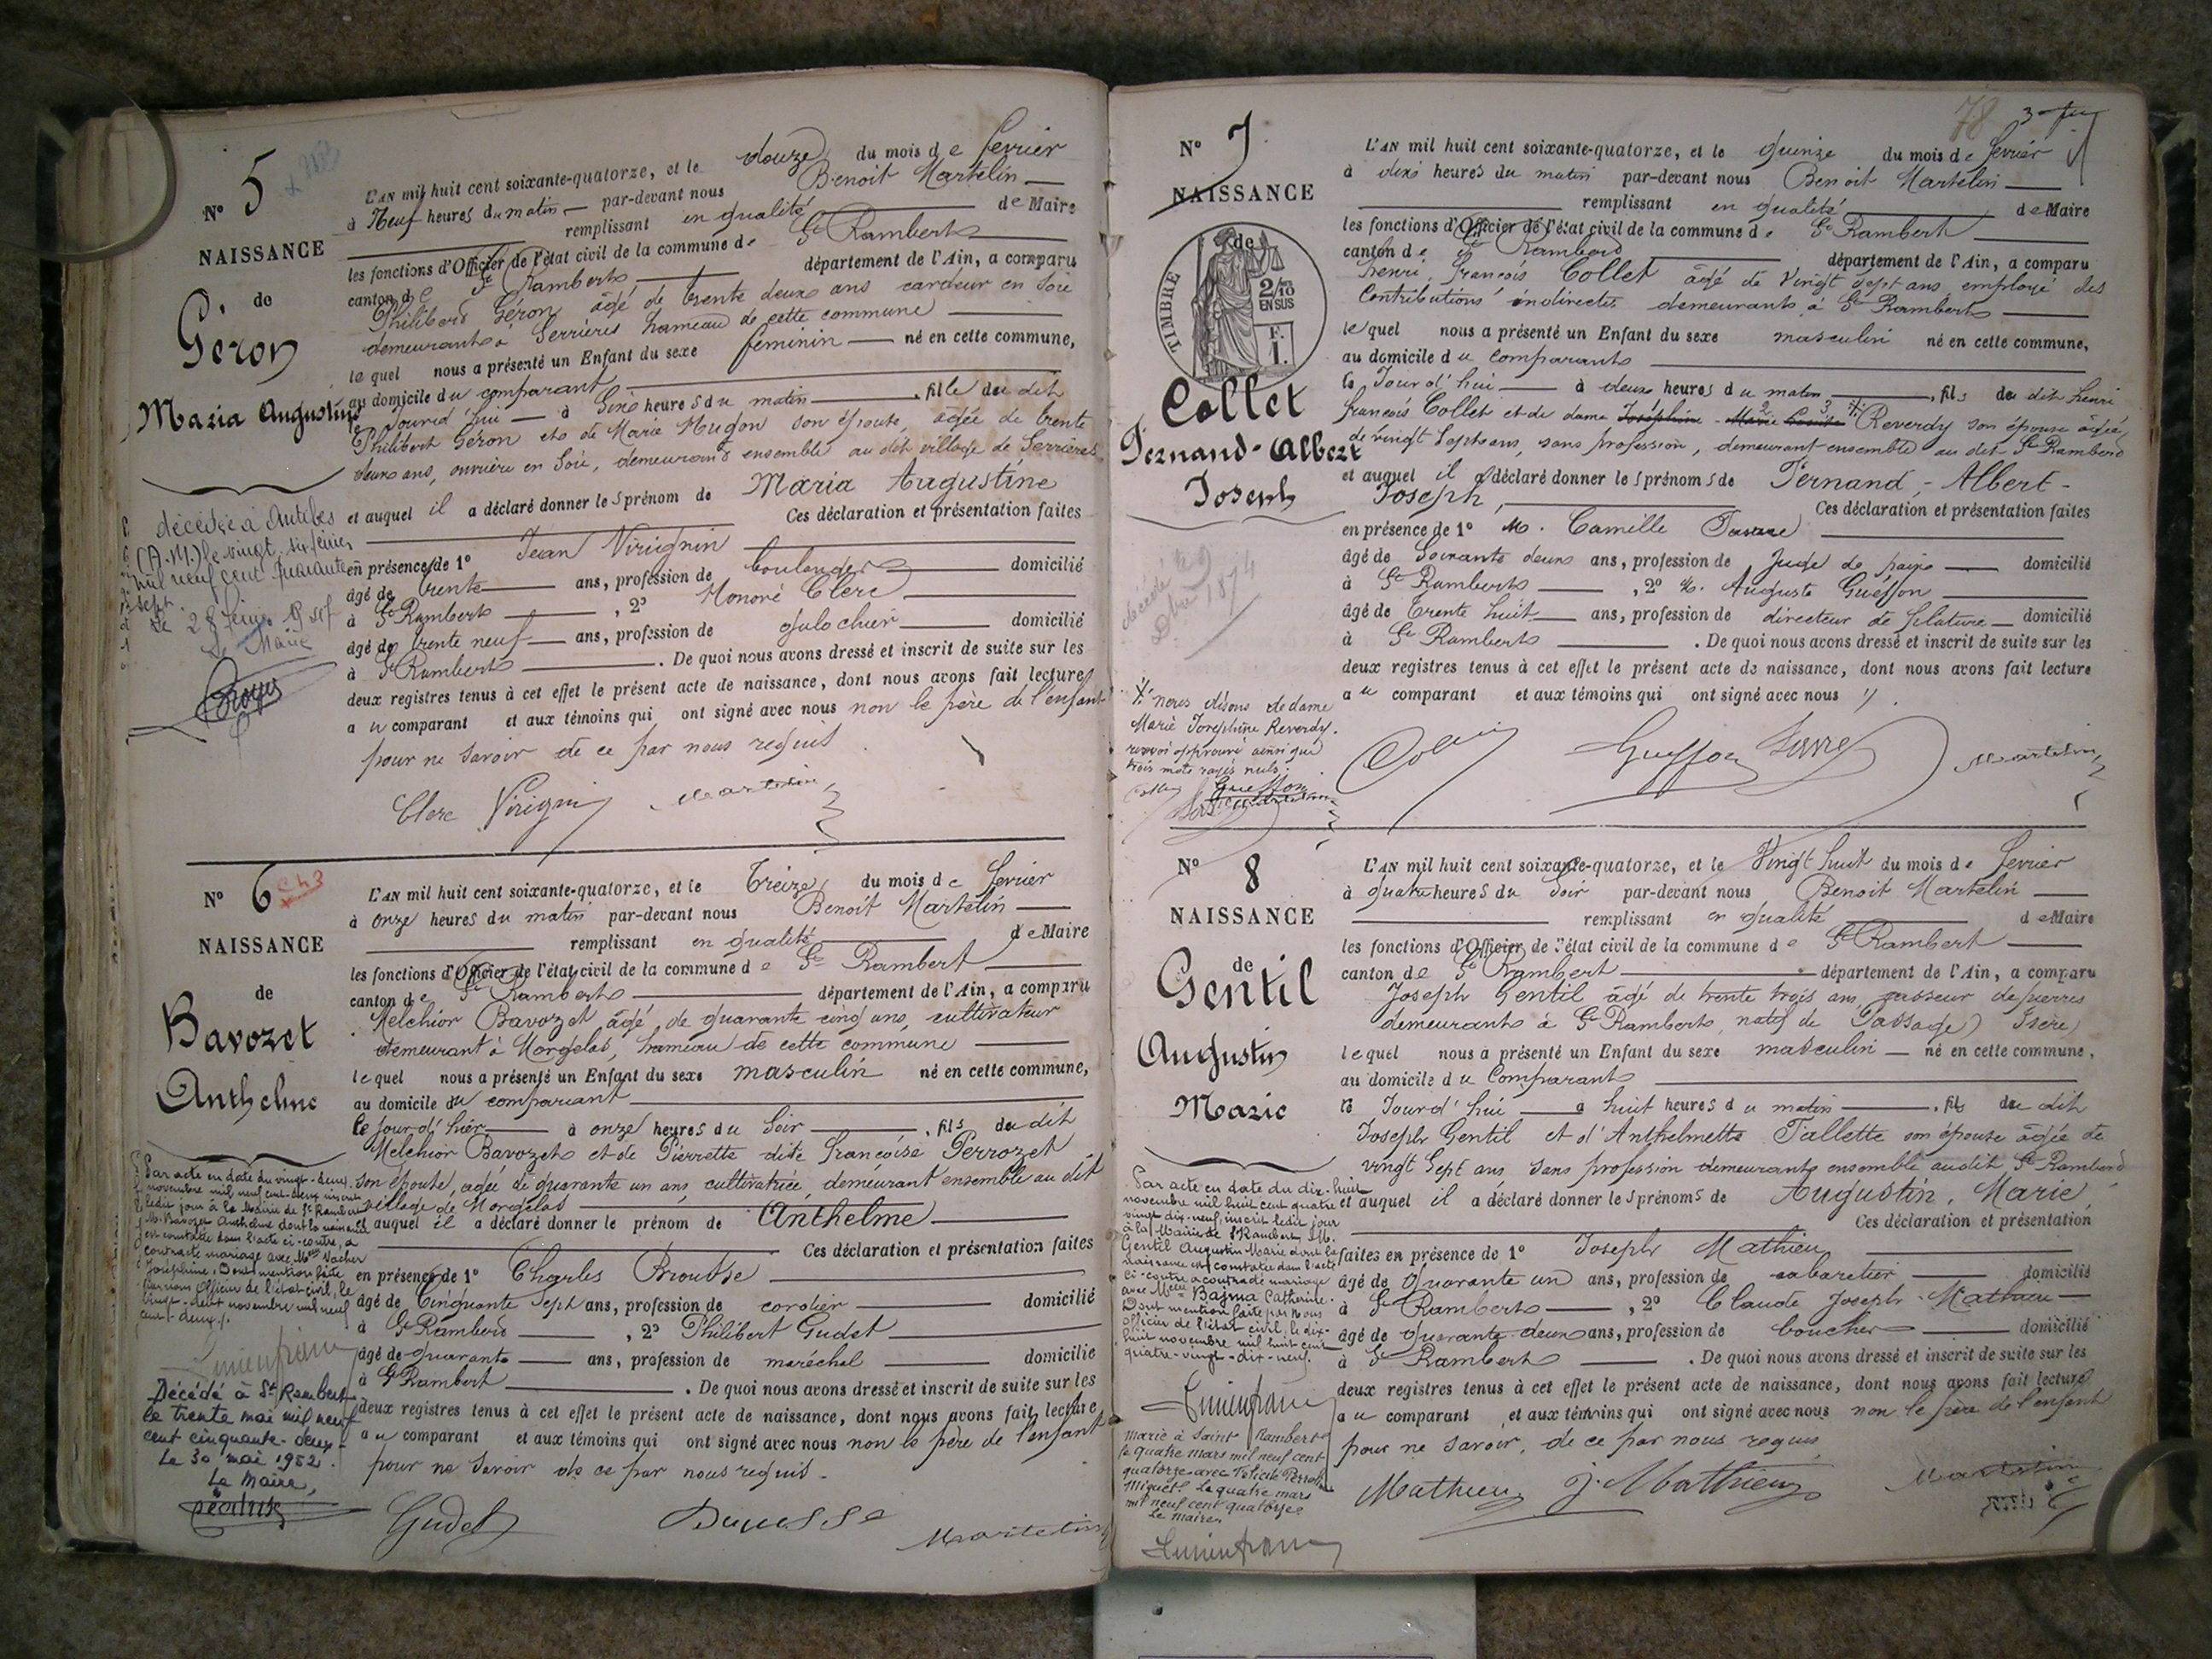 N° 5
NAISSANCE
de
Géron
Maria Augustine
décédée à Antibes
(A.M.) le vingt six février
mil neuf cent quarante
sept
Le 28 février 1947
Le Maire
L'AN mil huit cent soixante-quatorze, et le douze du mois de fevrier
à Neuf heures du matin par-devant nous Benoit Martelin
remplissant en qualité de Maire
les fonctions d'Officier de l'état civil de la commune de St Rambert
canton de St Rambert département de l'Ain, a comparu
Philibert Géron âgé de trente deux ans cardeur en soie
demeurant à Serrières hameau de cette commune
lequel nous a présenté un Enfant du sexe féminin né en cette commune,
au domicile du comparant
Jourd'hui à heures du matin , fille du dit
Philibert Géron et de Marie Mugon son épouse, âgée de trente
deux ans, ouvrière en soie, demeurant ensemble au dit village de Serrières
et auquel il a déclaré donner les prénom de Maria Augustine
Ces déclaration et présentation faites
en présence de 1° Jean Virignin
âgé de trente ans, profession de boulanger domicilié
à St Rambert , 2° Honoré Clerc
âgé de trente neuf ans, profession de domicilié
à St Rambert . De quoi nous avons dressé et inscrit de suite sur les
deux registres tenus à cet effet le présent acte de naissance, dont nous avons fait lecture
au comparant et aux témoins qui ont signé avec nous non le père de l'enfant
pour ne savoir de ce par nous requis
Clerc Virignin Martelin
N° 6
NAISSANCE
de
Bavozet
Anthelme
Par acte en date du vingt-deux
novembre mil neuf cent-deux inscrit
ledit jour à la Mairie de St Rambert
M. Bavozet Anthelme dont la naissance
est constatée dans l'acte ci-contre, a
contracté mariage avec Melle Vacher
Joséphine. Dont mention faite
par nous Officier de l'état-civil, le
vingt-deux novembre mil neuf
cent-deux.
Décédé à St Rambert
le trente mai mil neuf
cent cinquante-deux.
Le 30 mai 1952.
Le Maire,
L'AN mil huit cent soixante-quatorze, et le Treize du mois de fevrier
à onze heures du matin par-devant nous Benoit Martelin
remplissant en qualité de Maire
les fonctions d'Officier de l'état civil de la commune de St Rambert
canton de St Rambert département de l'Ain, a comparu
Melchior Bavozet âgé de quarante cinq ans, cultivateur
demeurant à Morgelas, hameau de cette commune
lequel nous a présenté un Enfant du sexe masculin né en cette commune,
au domicile du comparant
le jour d'hier à onze heures du soir , fils du dit
Melchior Bavozet et de Pierrette dite Françoise Perrozet
son épouse, agée de quarante un ans, cultivatrice, demeurant ensemble au dit
village de Morgelas
et auquel il a déclaré donner le prénom de Anthelme
Ces déclaration et présentation faites
en présence de 1° Charles Brousse
âgé de Cinquante Sept ans, profession de cordier domicilié
à St Rambert , 2° Philibert Gudet
âgé de quarante ans, profession de maréchal domicilié
à St Rambert . De quoi nous avons dressé et inscrit de suite sur les
deux registres tenus à cet effet le présent acte de naissance, dont nous avons fait lecture
au comparant et aux témoins qui ont signé avec nous non le père de l'enfant
pour ne savoir de ce par nous requis.
Gudet Martelin
78
N° 7
NAISSANCE
de
TIMBRE
2/10
EN SUS
F.
1.
Collet
Fernand-Albert
Joseph
décédé le 9
1874
nous disons de dame
Marie Joséphine Reverdy.
renvoi approuvé ainsi que
trois mots rayés nuls.
L'AN mil huit cent soixante-quatorze, et le quinze du mois de fevrier
à dix heures du matin par-devant nous Benoit Martelin
remplissant en qualité de Maire
les fonctions d'Officier de l'état civil de la commune de St Rambert
canton de St Rambert département de l'Ain, a comparu
henri, françois Collet âgé de vingt sept ans, employé des
Contributions indirectes demeurant à St Rambert
lequel nous a présenté un Enfant du sexe masculin né en cette commune,
au domicile du comparant
le Jour d'hui à deux heures du matin , fils du dit henri
françois Collet et de dame Joséphine Marie Reverdy son épouse âgée
de vingt sept ans, sans profession, demeurant ensemble au dit St Rambert
et auquel il a déclaré donner les prénoms de Fernand-Albert-
Joseph, Ces déclaration et présentation faites
en présence de 1° M. Camille
âgé de Soixante deux ans, profession de Juge de paix domicilié
à St Rambert , 2° M. Auguste Guesson
âgé de Trente huit ans, profession de directeur de filature domicilié
à St Rambert . De quoi nous avons dressé et inscrit de suite sur les
deux registres tenus à cet effet le présent acte de naissance, dont nous avons fait lecture
au comparant et aux témoins qui ont signé avec nous
Martelin
N° 8
NAISSANCE
de
Gentil
Augustin
Marie
Par acte en date du dix-huit
novembre mil huit cent quatre
vingt dix-neuf, inscrit ledit jour
à la Mairie de St Rambert, M.
Gentil Augustin Marie dont la
naissance est constatée dans l'acte
ci-contre a contracté mariage
avec Melle Bajma Catherine.
Dont mention faite par nous
officier de l'état civil, le dix-
huit novembre mil huit cent
quatre-vingt-dix-neuf.
Marié à Saint Rambert
le quatre mars mil neuf cent
quatorze avec Félicie
Miguet. Le quatre mars
mil neuf cent quatorze
Le Maire
L'AN mil huit cent soixante-quatorze, et le Vingt huit du mois de fevrier
à quatre heures du Soir par-devant nous Benoit Martelin
remplissant en qualité de Maire
les fonctions d'Officier de l'état civil de la commune de St Rambert
canton de St Rambert département de l'Ain, a comparu
Joseph Gentil âgé de trente trois ans, casseur de pierres
demeurant à St Rambert, natif de Passage) Isère)
lequel nous a présenté un Enfant du sexe masculin né en cette commune,
au domicile du Comparant
le Jour d'hui à huit heures du matin , fils du dit
Joseph Gentil et d'Anthelmette Tallette son épouse âgée de
vingt Sept ans, sans profession demeurant ensemble au dit St Rambert
et auquel il a déclaré donner les prénoms de Augustin, Marie
Ces déclaration et présentation
faites en présence de 1° Joseph Mathieu
âgé de Quarante un ans, profession de cabaretier domicilié
à St Rambert , 2° Claude Joseph Mathieu
âgé de quarante deux ans, profession de boucher domicilié
à St Rambert . De quoi nous avons dressé et inscrit de suite sur les
deux registres tenus à cet effet le présent acte de naissance, dont nous avons fait lecture
au comparant et aux témoins qui ont signé avec nous non le père de l'enfant
pour ne savoir, de ce par nous requis
Mathieu J. Mathieu Martelin